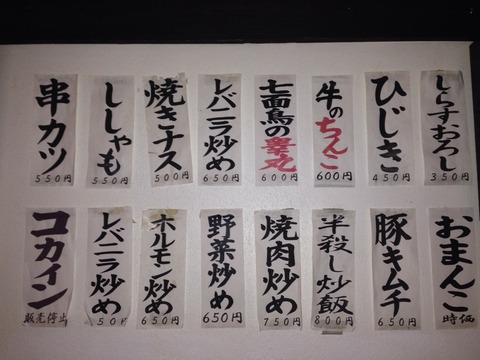 しらすおろし
350円
ひじき
450円
牛のちんこ
600円
七面鳥の睾丸
600円
レバニラ炒め
650円
焼きナス
500円
ししゃも
550円
串カツ
550円
おまんこ
時価
豚キムチ
650円
半殺し炒飯
800円
焼肉炒め
750円
野菜炒め
650円
ホルモン炒め
650円
レバニラ炒め
50円
コカイン
販売停止